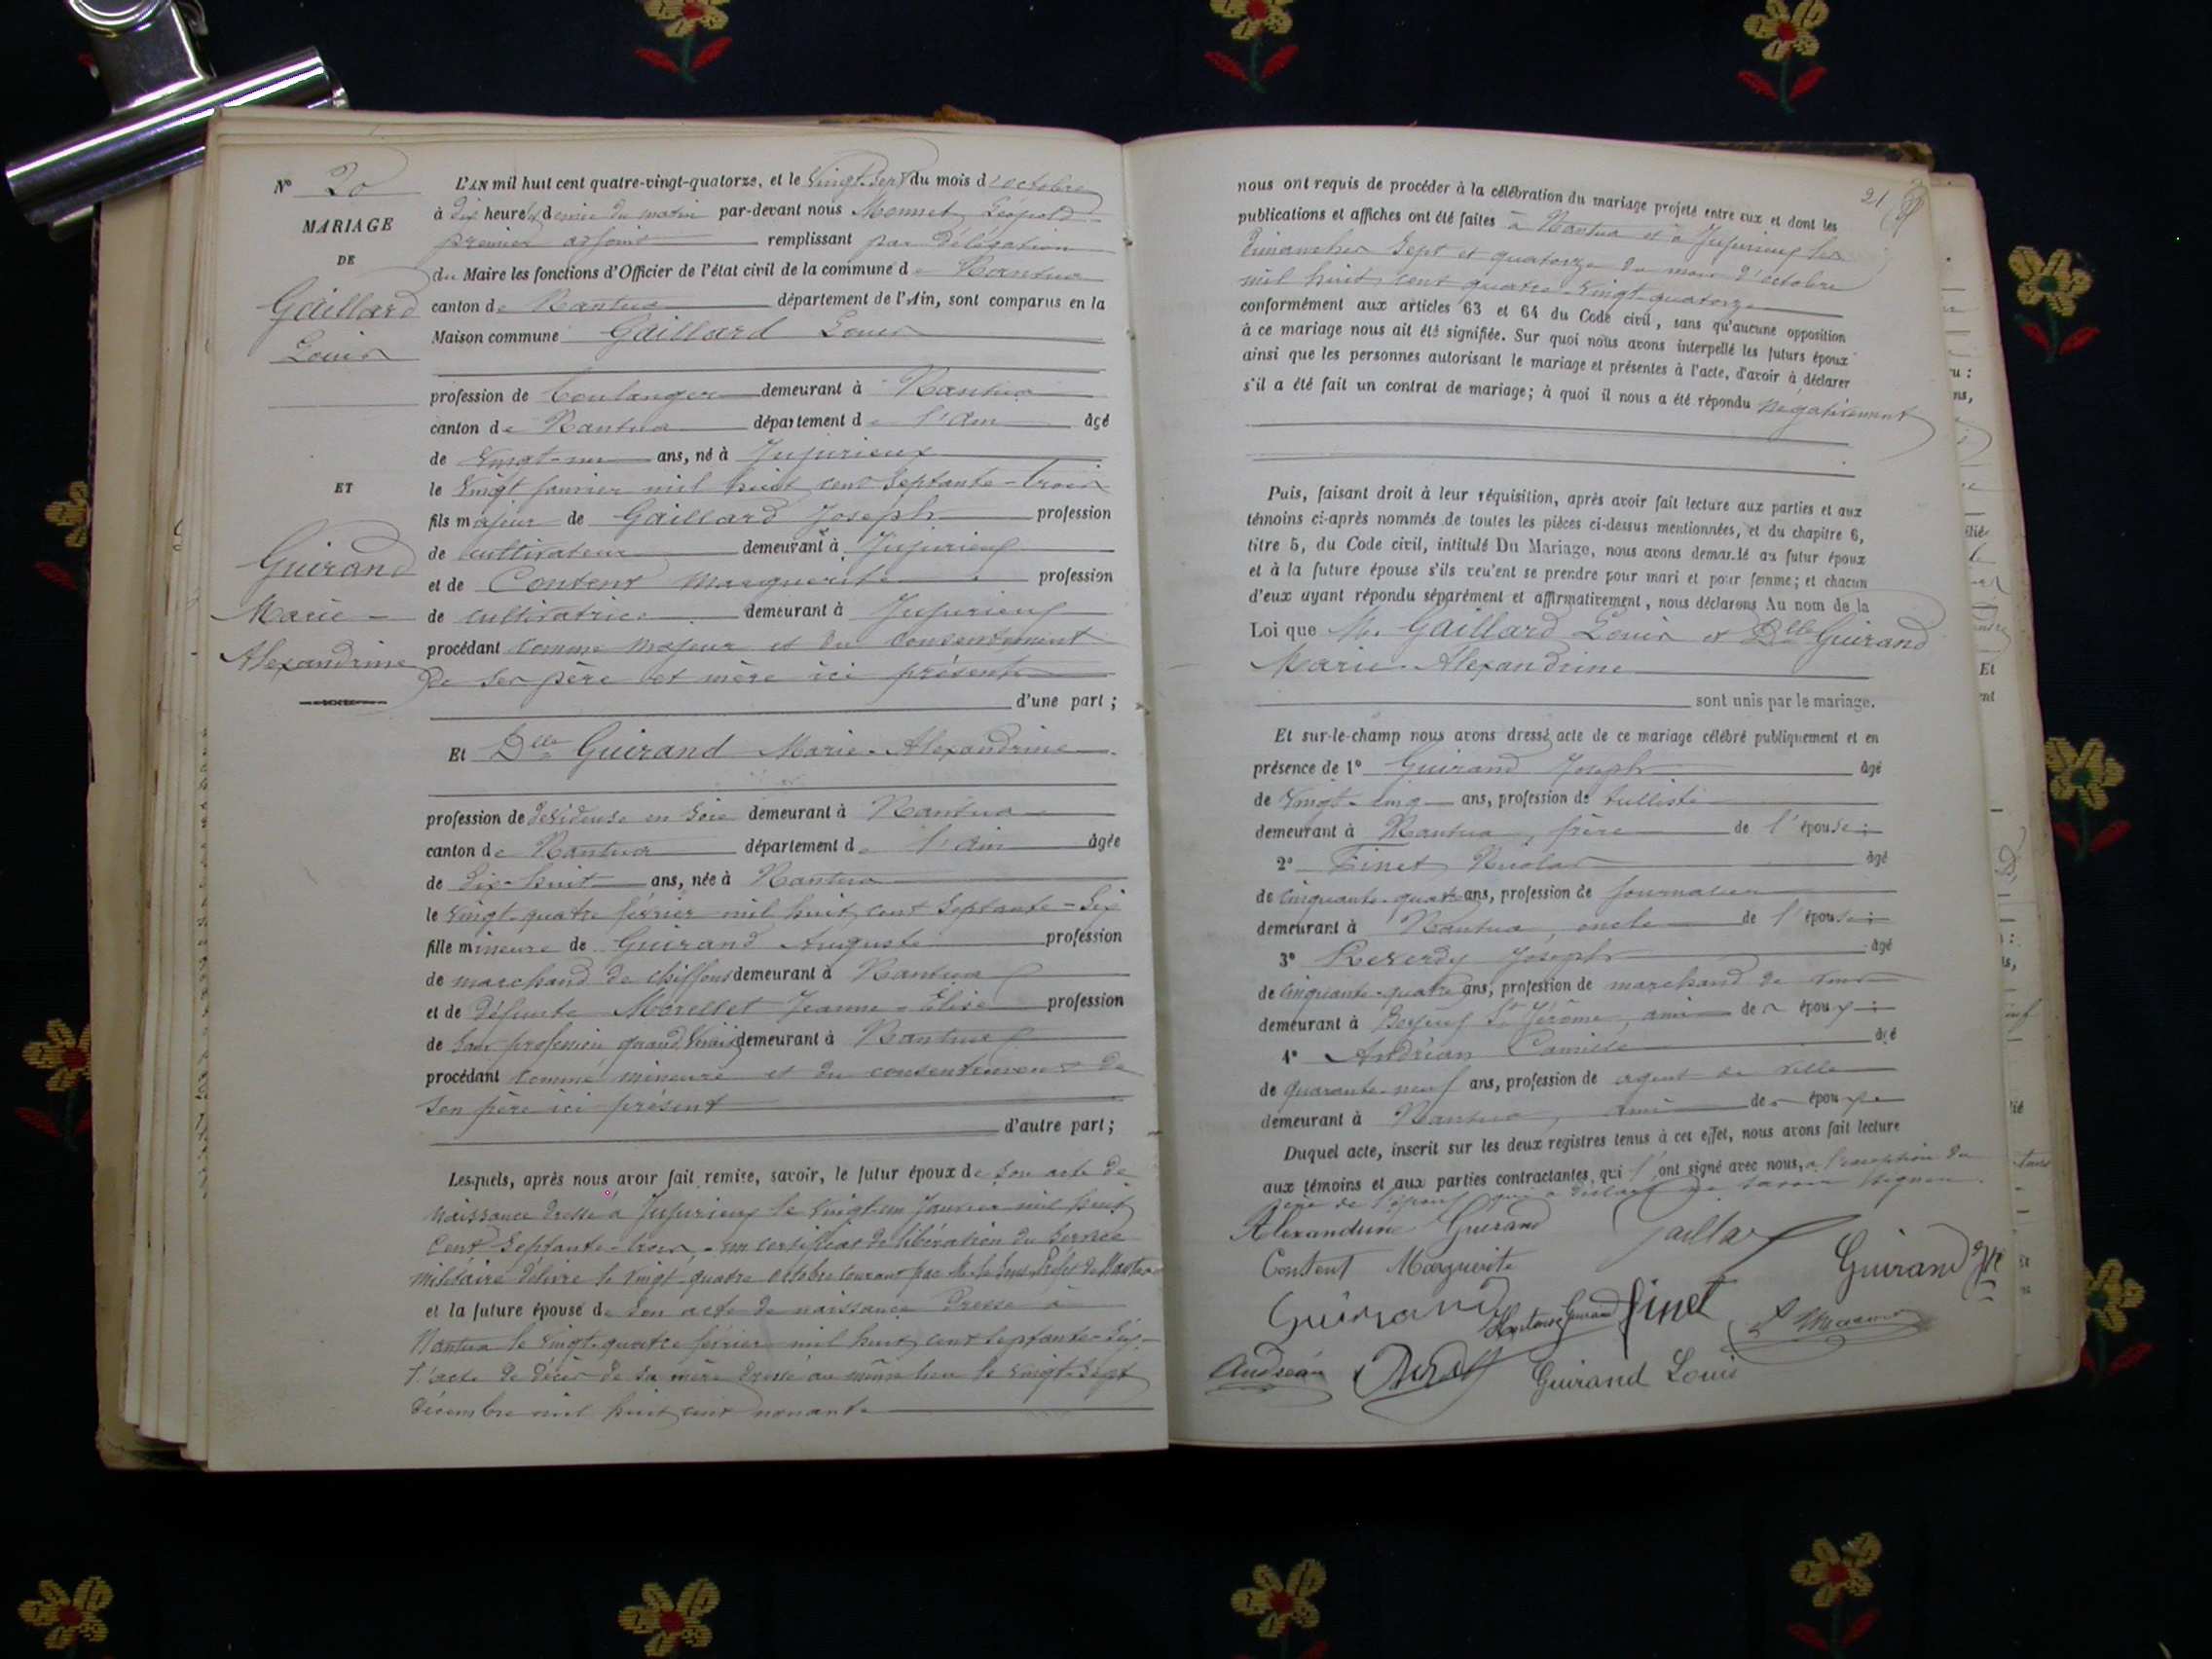 N° 20
MARIAGE
DE
Gaillard
Louis
ET
Guirand
Marie-
Alexandrine
L'AN mil huit cent quatre-vingt-quatorze, et le Vingt-Sept du mois d'octobre
à dix heures & demie du matin par-devant nous Monnet Léopold
premier adjoint remplissant par délégation
du Maire les fonctions d'Officier de l'état civil de la commune de Nantua
canton de Nantua département de l'Ain, sont comparus en la
Maison commune Gaillard Louis
profession de boulanger demeurant à Nantua
canton de Nantua département de l'Ain âgé
de vingt-un ans, né à Jujurieux
le vingt janvier mil huit cent septante-trois
fils majeur de Gaillard Joseph profession
de cultivateur demeurant à Jujurieux
et de Content Marguerite profession
de cultivatrice demeurant à Jujurieux
procédant comme majeur et du consentement
de ses père et mère ici présents
d'une part ;
Et Dlle Guirand Marie-Alexandrine
profession de dévideuse en soie demeurant à Nantua
canton de Nantua département de l'Ain âgée
de dix-huit ans, née à Nantua
le vingt-quatre février mil huit cent septante-six
fille mineure de Guirand Auguste profession
de marchand de chiffons demeurant à Nantua
et de défunte Morellet Jeanne-Elise profession
de sans profession quand vivait demeurant à Nantua
procédant comme mineure et du consentement de
son père ici présent
d'autre part ;
Lesquels, après nous avoir fait remise, savoir, le futur époux de son acte de
naissance dressé à Jujurieux le vingt-un janvier mil huit
cent septante-trois, un certificat de libération du service
militaire délivré le vingt-quatre octobre courant par M. le Sous Préfet de Nantua
et la future épouse de son acte de naissance dressé à
Nantua le vingt-quatre février mil huit cent septante-six,
l'acte de décès de sa mère dressé au même lieu le vingt-sept
décembre mil huit cent nonante
21
nous ont requis de procéder à la célébration du mariage projeté entre eux et dont les
publications et affiches ont été faites à Nantua et à Jujurieux les
dimanches sept et quatorze du mois d'octobre
mil huit cent quatre-vingt-quatorze
conformément aux articles 63 et 64 du Code civil, sans qu'aucune opposition
à ce mariage nous ait été signifiée. Sur quoi nous avons interpellé les futurs époux
ainsi que les personnes autorisant le mariage et présentes à l'acte, d'avoir à déclarer
s'il a été fait un contrat de mariage; à quoi il nous a été répondu négativement
Puis, faisant droit à leur réquisition, après avoir fait lecture aux parties et aux
témoins ci-après nommés de toutes les pièces ci-dessus mentionnées, et du chapitre 6,
titre 5, du Code civil, intitulé Du Mariage, nous avons demandé au futur époux
et à la future épouse s'ils veulent se prendre pour mari et pour femme; et chacun
d'eux ayant répondu séparément et affirmativement, nous déclarons Au nom de la
Loi que Mr Gaillard Louis et Dlle Guirand
Marie-Alexandrine
sont unis par le mariage.
Et sur-le-champ nous avons dressé acte de ce mariage célébré publiquement et en
présence de 1° Guirand Joseph âgé
de vingt-cinq ans, profession de tulliste
demeurant à Nantua, frère de l'épouse;
2° Finet Nicolas âgé
de cinquante-quatre ans, profession de journalier
demeurant à Nantua, oncle de l'épouse;
3° Reverdy Joseph âgé
de cinquante-quatre ans, profession de marchand de
demeurant à St Jérôme, ami des époux;
4° Andréan Camille âgé
de quarante-neuf ans, profession de agent de ville
demeurant à Nantua, ami des époux
Duquel acte, inscrit sur les deux registres tenus à cet effet, nous avons fait lecture
aux témoins et aux parties contractantes, qui l'ont signé avec nous, à l'exception du
père de l'époux qui a déclaré ne savoir signer.
Alexandrine Guirand Gaillard
Content Marguerite Guirand
Guirand Guirand finet
Andréan Guirand Louis